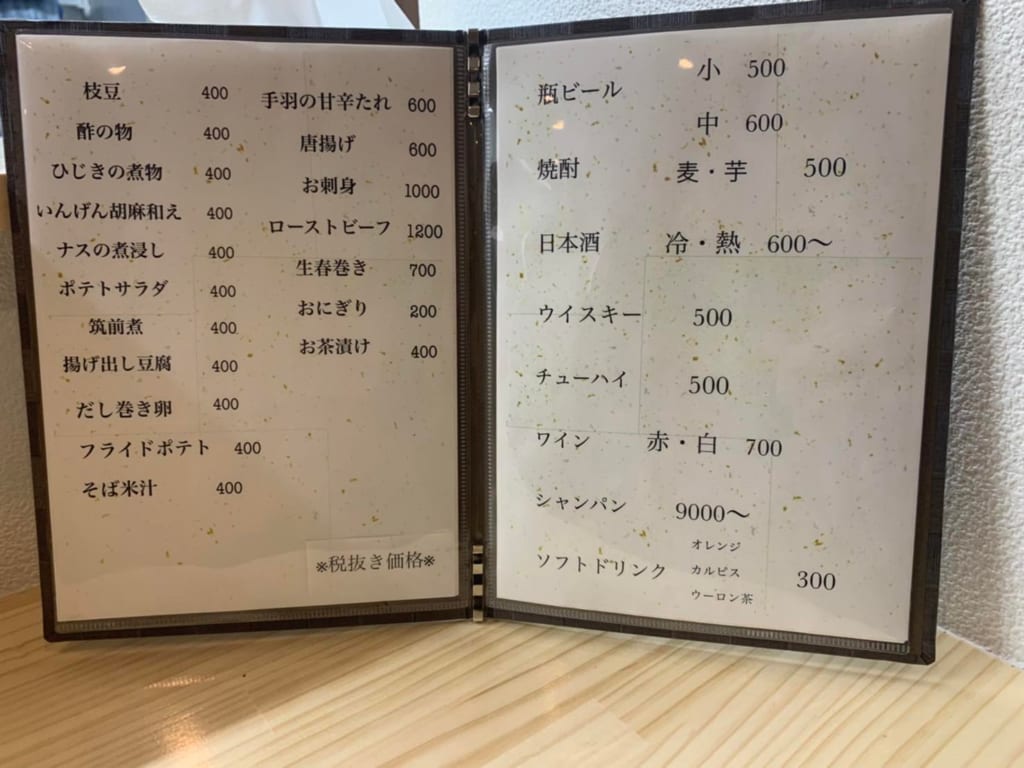 枝豆 400
酢の物 400
ひじきの煮物 400
いんげん胡麻和え 400
ナスの煮浸し 400
ポテトサラダ 400
筑前煮 400
揚げ出し豆腐 400
だし巻き卵 400
フライドポテト 400
そば米汁 400
手羽の甘辛たれ 600
唐揚げ 600
お刺身 1000
ローストビーフ 1200
生春巻き 700
おにぎり 200
お茶漬け 400
※税抜き価格※
瓶ビール 小 500
中 600
焼酎 麦・芋 500
日本酒 冷・熱 600〜
ウイスキー 500
チューハイ 500
ワイン 赤・白 700
シャンパン 9000〜
ソフトドリンク オレンジ
カルピス 300
ウーロン茶